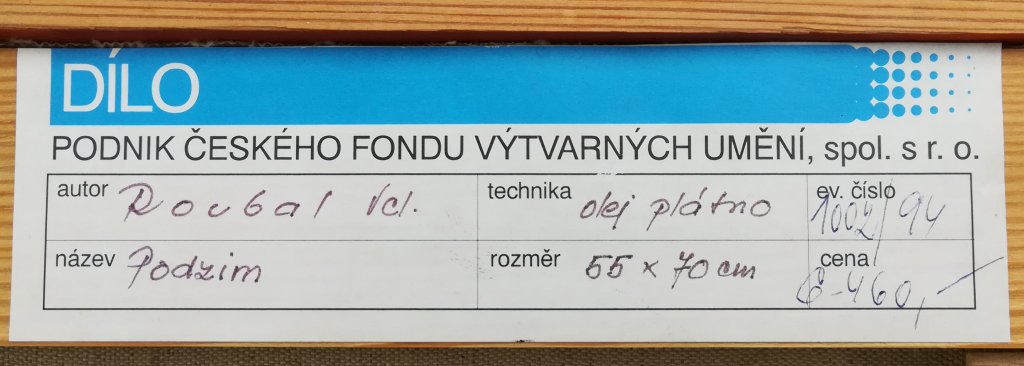 DÍLO
PODNIK ČESKÉHO FONDU VÝTVARNÝCH UMĚNÍ, spol. s r. o.
autor Roubal Vcl. technika olej plátno ev. číslo 1002/94
název Podzim rozměr 55 x 70 cm cena 460,-